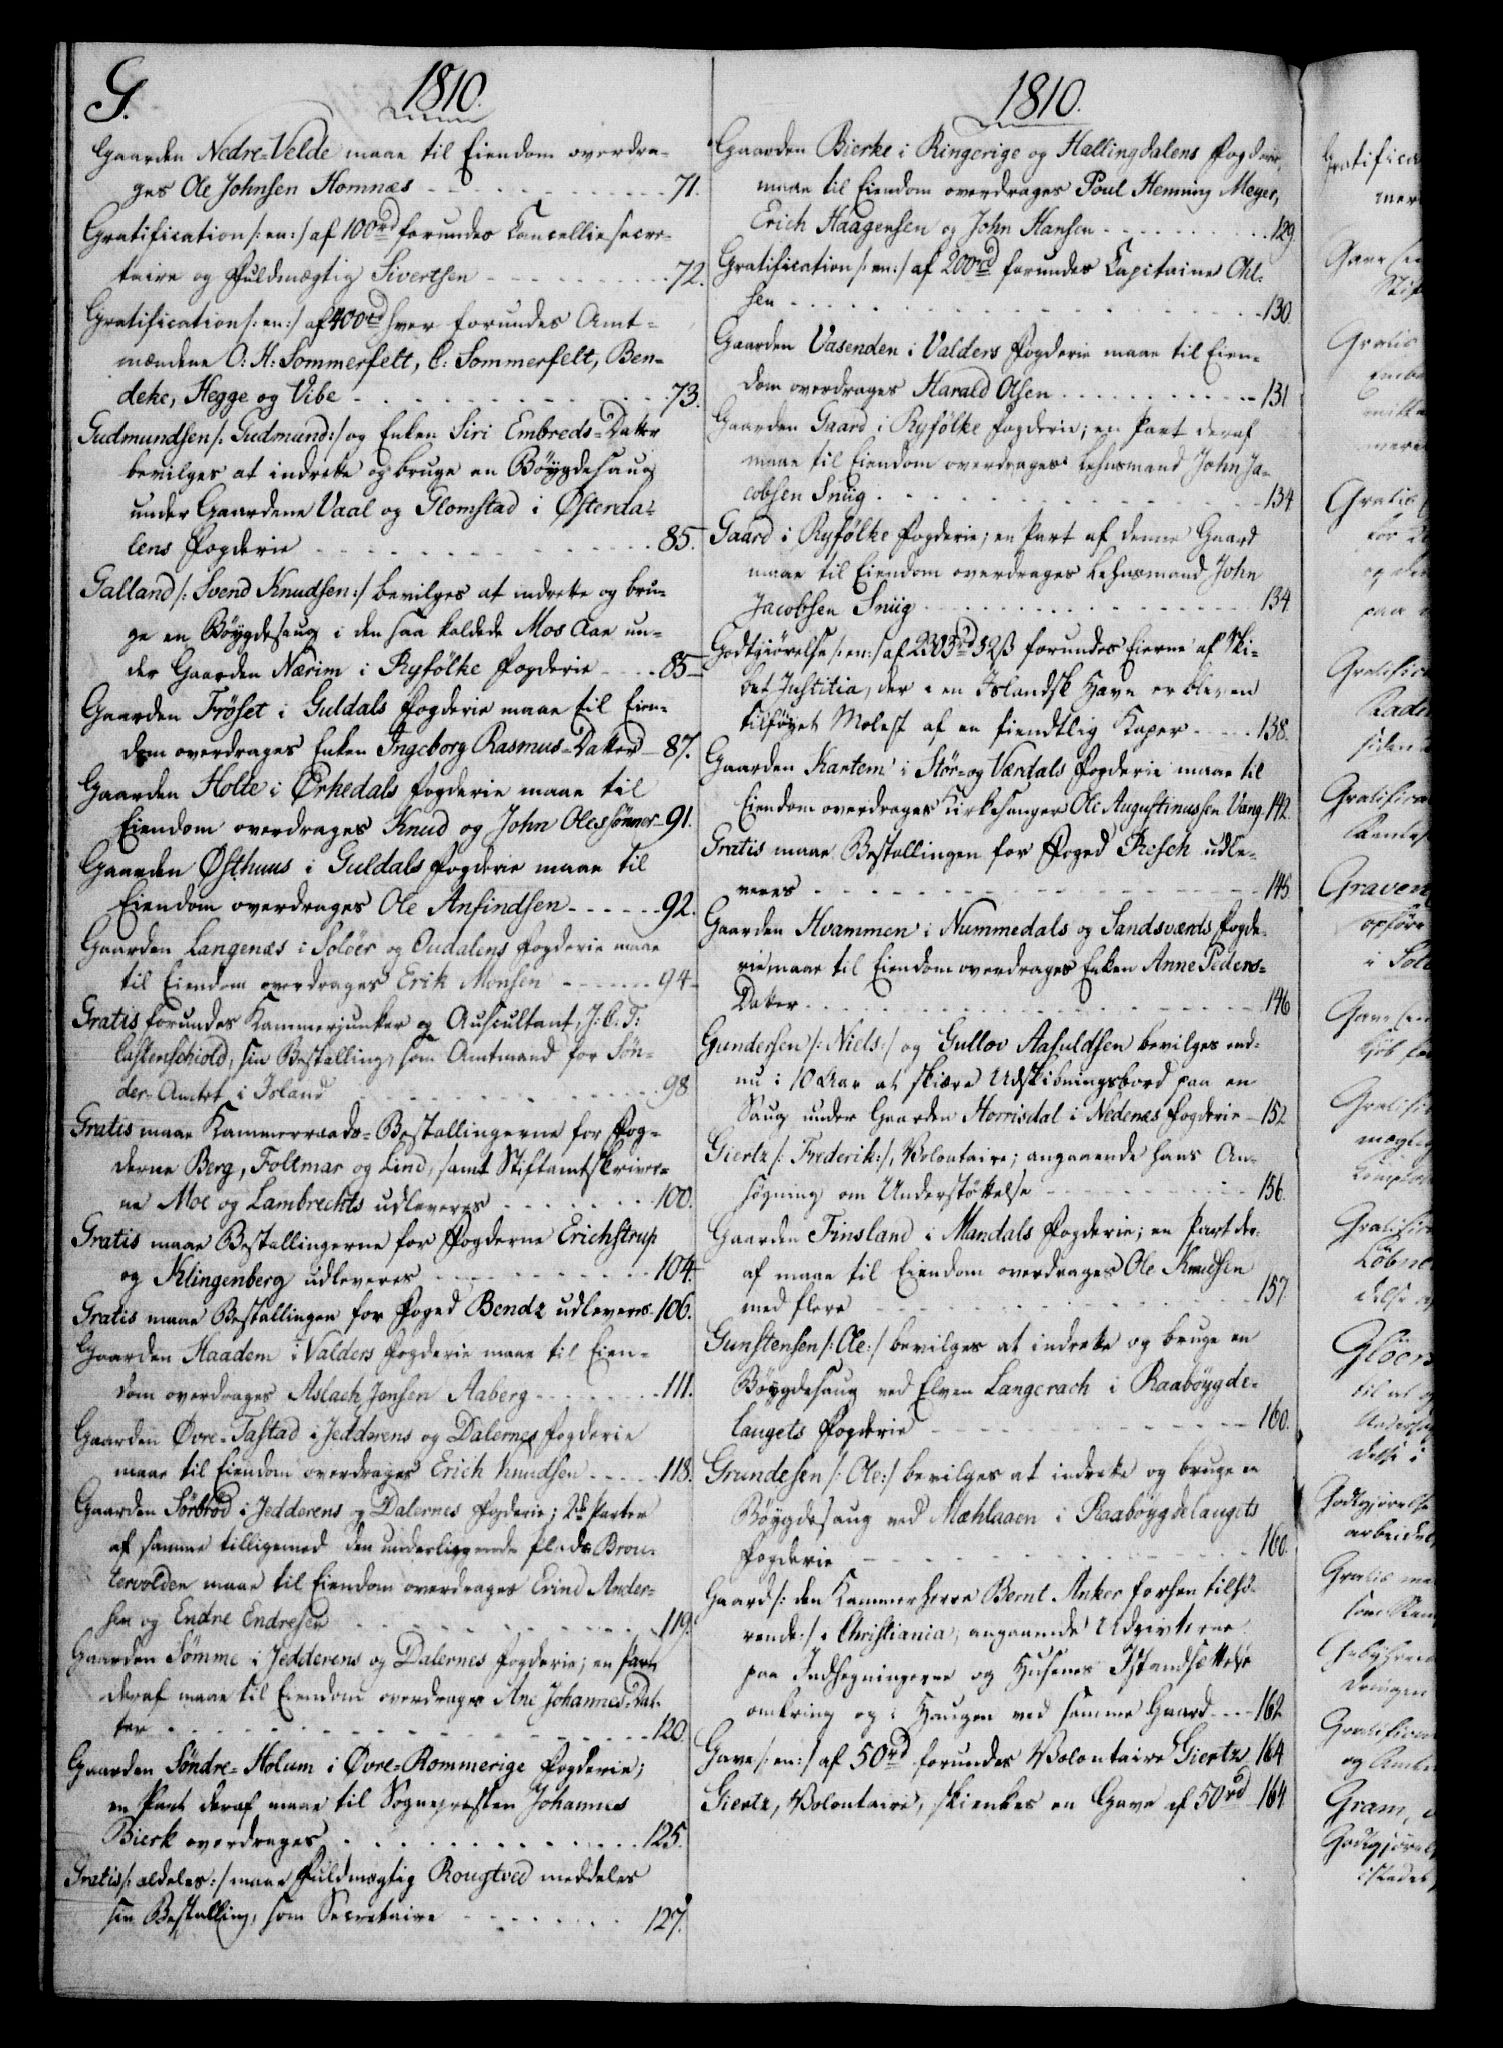 G.
1810.
Gaarden Nedre-Velde maae til Eiendom overdra-
ges Ole Johnsen Homnæs - - - 71.
Gratification /: en :/ af 100rd forundes Cancelliesecre-
taire og Fuldmægtig Sivertsen - - - 72.
Gratification /: en :/ af 400rd hver forundes Amt-
mændene O: H: Sommerfelt, C: Sommerfelt, Ben-
deke, Hegge og Vibe - - - 73.
Gudmundsen /: Gudmund :/ og Enken Siri Embreds-Datter
bevilges at indrette og bruge en Böygdesaug
under Gaardene Vaal og Glomstad i Østerda-
lens Fogderie - - - 85.
Galland /: Svend Knudsen :/ bevilges at indrette og bru-
ge en Böygdesaug i den saa kaldede Mos Aae un-
der Gaarden Nærim i Ryfölke Fogderie - - 85
Gaarden Fröset i Guldals Fogderie maae til Eien-
dom overdrages Enken Ingeborg Rasmus-Datter - 87.
Gaarden Holte i Ørkedals Fogderie maae til
Eiendom overdrages Knud og John Olessönner - 91.
Gaarden Østhuus i Guldals Fogderie maae til
Eiendom overdrages Ole Anfindsen - - - 92.
Gaarden Langenæs i Solöer og Oudalens Fogderie maae
til Eiendom overdrages Erik Monsen - - - 94
Gratis forundes Kammerjunker og Auscultant, J: C: T:
Castenschiold, sin Bestalling, som Amtmand for Sön-
der-Amtet i Island - - - 98
Gratis maae Kammerraads-Bestallingerne for Fog-
derne Berg, Foltmar og Lind, samt Stiftamtskriver-
ne Moe og Lambrechts udleveres - - - 100.
Gratis maae Bestallingerne for Fogderne Erichstrup
og Klingenberg udleveres - - - 104.
Gratis maae Bestallingen for Foged Bendz udleveres - 106.
Gaarden Haadem i Valders Fogderie maae til Eien-
dom overdrages Aslach Jonsen Aaberg - - - 111.
Gaarden Øvre-Tastad i Jedderens og Dalernes Fogderie
maae til Eiendom overdrages Erich Knudsen - - - 118.
Gaarden Sörbröd i Jedderens og Dalernes Fogderie; 2de Parter
af samme tilligemed den underliggende Plads Brou-
tervolden maae til Eiendom overdrages Erind Ander-
sen og Endre Endresen - - - 119.
Gaarden Sömme i Jedderens og Dalernes Fogderie; en Part
deraf maae til Eiendom overdrages Ane Johannes-Dat-
ter - - - 120.
Gaarden Söndre-Holum i Øvre-Rommerige Fogderie;
en Part deraf maae til Sognepresten Johannes
Bierk overdrages - - - 125.
Gratis /: aldeles :/ maae Fuldmægtig Rougtved meddeles
sin Bestalling, som Secretaire - - - 127.
1810.
Gaarden Bierke i Ringerige og Hallingdalens Fogderie,
maae til Eiendom overdrages Poul Henning Meyer,
Erich Haagensen og John Hansen - - - 129.
Gratification /: en :/ af 200rd forundes Capitaine Ohl-
sen - - - 130.
Gaarden Vasenden i Valders Fogderie maae til Eien-
dom overdrages Harald Olsen - - - 131
Gaarden Gaard i Ryfölke Fogderie; en Part deraf
maae til Eiendom overdrages Lehnsmand John Ja-
cobsen Sniig - - - 134
Gaard i Ryfölke Fogderie; en Part af denne Gaard
maae til Eiendom overdrages Lehnsmand John
Jacobsen Sniig - - - 134
Godtgiörelse /: en :/ af 2303rd 32ß forundes Eierne af Ski-
bet Justitia, der i en Islandsk Havn er bleven
tilföyet Molest af en fiendtlig Kaper - - - 138.
Gaarden Kartem i Stör- og Værdals Fogderie maae til
Eiendom overdrages Kirkesanger Ole Augustinussen Vang - 142.
Gratis maae Bestallingen for Foged Resch udle-
veres - - - 145
Gaarden Hvammen i Nummedals og Sandsværds Fogde-
rie maae til Eiendom overdrages Enken Anne Peders-
Datter - - - 146
Gundersen /: Niels :/ og Gullov Aasuldsen bevilges end-
nu i 10 Aar at skiære Udskibningsbord paa en
Saug under Gaarden Horrisdal i Nedenæs Fogderie - 152
Giertz /: Frederik :/, Volontaire; angaaende hans An-
søgning om Understöttelse - - - 156.
Gaarden Finsland i Mandals Fogderie; en Part der-
af maae til Eiendom overdrages Ole Knudsen
med flere - - - 157
Gunstensen /: Ole :/ bevilges at indrette og bruge en
Böygdesaug ved Elven Langerach i Raaböygde-
laugets Fogderie - - - 160.
Grundesen /: Ole :/ bevilges at indrette og bruge en
Böygdesaug ved Mæhlaaen i Raaböygdelaugets
Fogderie - - - 160.
Gaard /: den Kammerherre Bernt Anker forhen tilhö-
rende :/ i Christiania, angaaende Udgivterne
paa Indhegningerne og Husenes Istandsettelse
omkring og i Haugen ved samme Gaard - - - 162
Gave /: en :/ af 50rd forundes Volontaire Giertz 164
Giertz, Volontaire, skienkes en Gave af 50rd 164